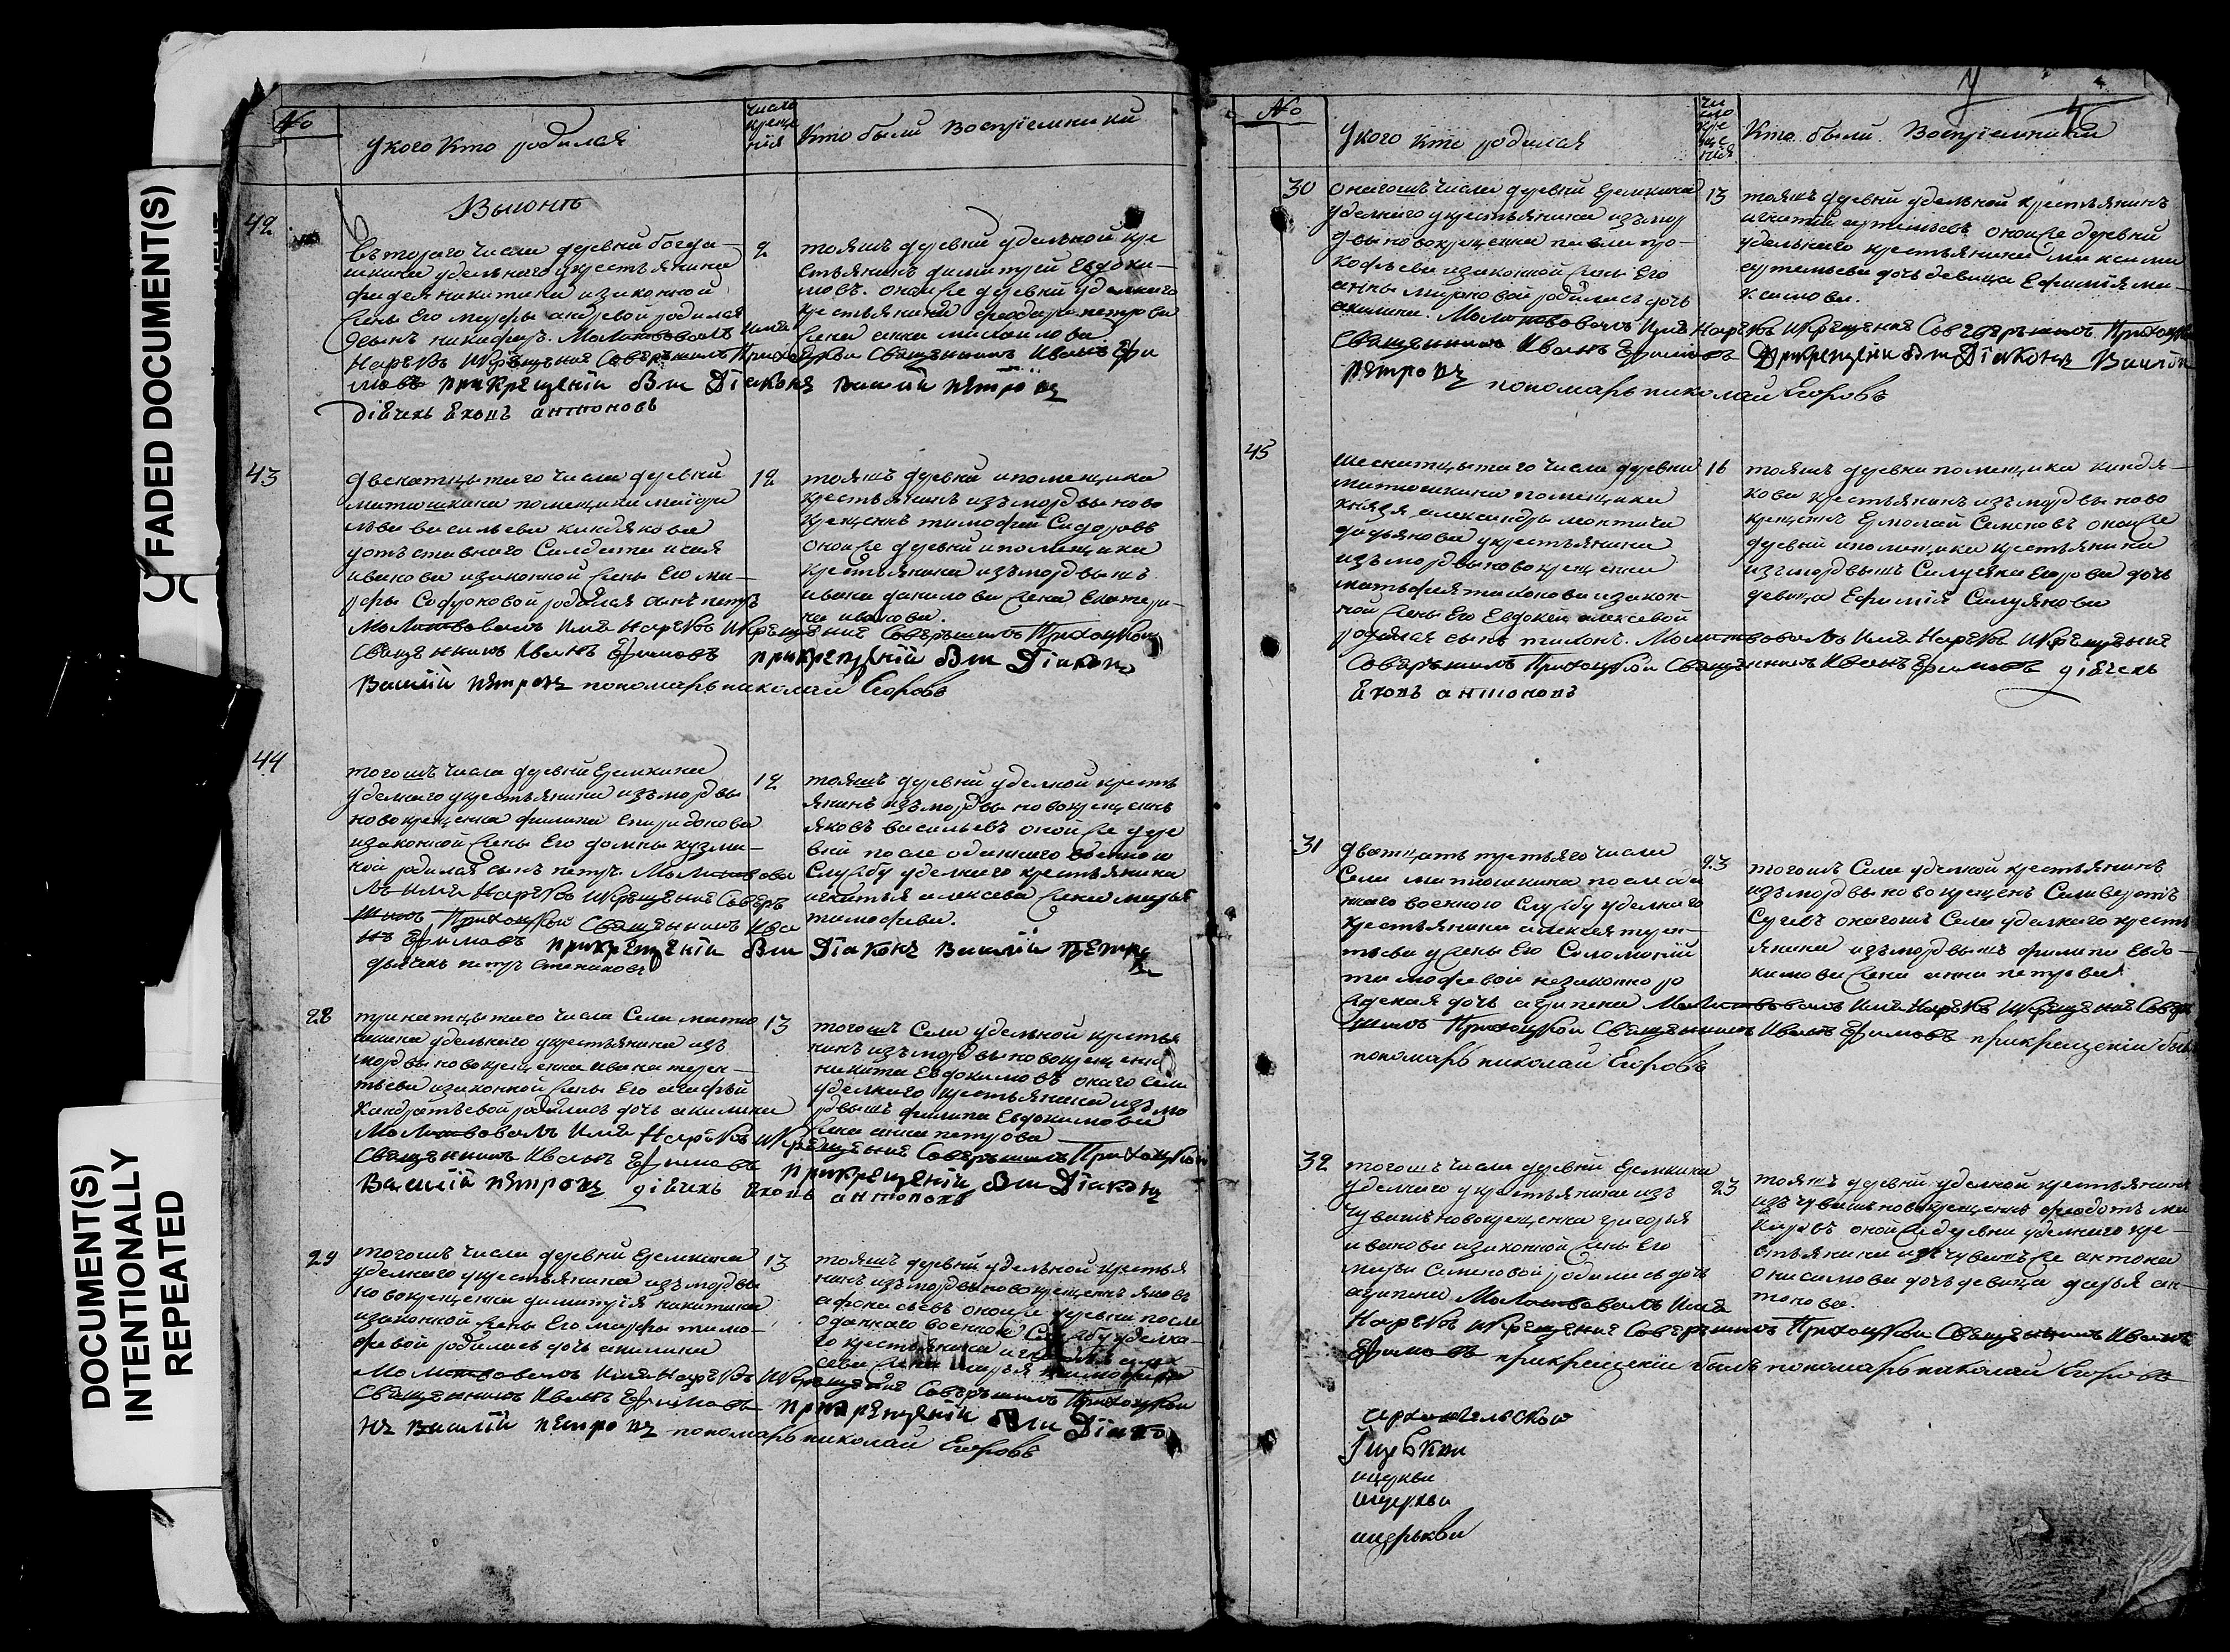 FADED DOCUMENT(S)
DOCUMENT(S)
INTENTIONALLY
REPEATED
№
У кого кто родился
число
креще
нія
Кто были восприемники
Въ июнѣ
42
въторого числа деревни богда-
шкина удельного укрестьянина
фадея никитина изаконной
жены Его марфы андреевой родился
сынъ никифоръ. Молитвовалъ имя
Нарекъ икрещение Совершилъ Приходский Священникъ Иванъ Ефи
мовъ прикрещении был Діаконъ Василій петровъ
діячекъ яковъ антоновъ
2
тояжъ деревни удельной кре
стьянинъ димитрей Евдоки-
мовъ. оной же деревни удельного
крестьянина феодора петрова
жена анна михайлова
43
двенатцатого числа деревни
матюшкина помещика маиора
льва васильева киндякова
уотставного Салдата исая
иванова изаконной жены Его ма-
рфы Софроновой родился сынъ петръ
Молитвовалъ имя нарекъ икрещение Совершилъ Приходской
Священникъ Иванъ Ефимовъ прикрещении был Діаконъ
Василій петровъ пономарь николай Егоровъ
12
тояжъ деревни ипомещика
крестьянинъ измордвы ново
крещенъ тимофей Сидоровъ
оной же деревни ипомещика
крестьянина измордвы жъ
ивана данилова жена Екатери-
на иванова.
44
тогожъ числа деревни Еремкина
уделного укрестьянина измордвы
новокрещена филипа спиридонова
изаконной жены Его домны кузми-
ной родился сынъ петръ. Молитвова
лъ имя Нарекъ икрещение Совер
шилъ Приходской Священникъ Ива
нъ Ефимовъ прикрещении был Діаконъ Василій петровъ
дьячекъ петръ
12
тояжъ деревни уделной кресть
янинъ измордвы новокрещенъ
яковъ васильевъ оной же дере
вни после отданного военною
Службу уделного крестьянина
игнатья алексева жена марья
тимофеева.
28
тринатцатого числа Села матю
шкина удельного укрестьянина изъ
мордвы новокрещена ивана терен-
тьева изаконной жены Его агафьи
Кандратьевой родилась дочь акилина
Молитвовалъ имя Нарекъ икрещение Совершилъ Приходской
Священникъ Иванъ Ефимовъ прикрещении был Діаконъ
Василій петровъ діячекъ яковъ антоновъ
13
тогожъ Села удельной крестья
нинъ измордвы новокрещенъ
никита Евдокимовъ оного Села
уделного крестьянина измо
рдвы жъ филипа Евдокимова
жена анна петрова
29
тогожъ числа деревни Еремкина
уделного укрестьянина измордвы
новокрещена димитрія никитина
изаконной жены Его марфы тимо-
феевой родилась дочь акилина
Молитвовалъ имя Нарекъ икрещение Совершилъ Приходской
Священникъ Иванъ Ефимовъ прикрещении был Діако
нъ Василій петровъ пономарь николай Егоровъ
13
тояжъ деревни удельной крестья
нинъ измордвы новокрещенъ яковъ
афонасьевъ оной же деревни после
отданного военною Службу уделно-
го крестьянина
жена марья тимофеева
№
У кого кто родился
чи
сло
кре
ще
нія
Кто были Восприемники
30
оногожъ числа деревни Еремкина
уделного укрестьянина измор
двы новокрещена павла про-
кофьева изаконной жены Его
анны мироновой родилась дочь
акилина. Молитвовалъ имя Нарекъ икрещение Совершилъ Приходской
Священникъ Иванъ Ефимовъ прикрещении был Діаконъ Василій
петровъ пономарь николай Егоровъ
13
тояжъ деревни удельной крестьянинъ
игнатій артемьевъ оной же деревни
удельного крестьянина максима
артемьева дочь девица Ефимія ма-
ксимова.
45
Шеснатцатого числа деревни
матюшкина помещика
Князя александры
дадьянова укрестьянина
измордвы новокрещена
матьфея тихонова изакон-
ной жены Его Евдокеи алексевой
родился сынъ тихонъ. Молитвовалъ имя Нарекъ икрещение
Совершилъ Приходской Священникъ Иванъ Ефимовъ діячекъ
яковъ антоновъ
16
тояжъ деревни помещика киндя-
кова крестьянинъ измордвы ново
крещенъ Ермолай Семеновъ оной же
деревни ипомещика крестьянина
измордвы жъ Силуяна Егорова дочь
девица Ефимія Силуянова
31
дватцать третьяго числа
Села матюшкина после отда
нного военною Службу уделного
крестьянина алексея терен-
тьева ужены Его Соломоніи
тимофеевой незаконно ро
жденая дочь агрипена Молитвовалъ имя Нарекъ икрещение Совер
шилъ Приходской Священникъ Иванъ Ефимовъ прикрещении былъ
пономарь николай Егоровъ
23
тогожъ Села уделной крестьянинъ
измордвы новокрещенъ Селиверстъ
Сергевъ оногожъ Села уделного кресть
янина измордвы жъ филипа Евдо-
кимова жена анна петрова
32
тогожъ числа деревни Еремкина
уделного укрестьянина изъ
чувашъ новокрещена григорья
иванова изаконной жены Его
марьи Семеновой родилась дочь
агрипена Молитвовалъ имя
Нарекъ икрещение Совершилъ Приходской Священникъ Иванъ
Ефимовъ прикрещении былъ пономарь николай Егоровъ
23
тояжъ деревни уделной крестьянинъ
изчувашъ новокрещенъ феодотъ ма
каровъ оной же деревни уделного кре-
стьянина изчувашъ же антона
онисимова дочь девица дарья ан-
тонова.
архангельской
ицеркви
ицеркви
ицеркви